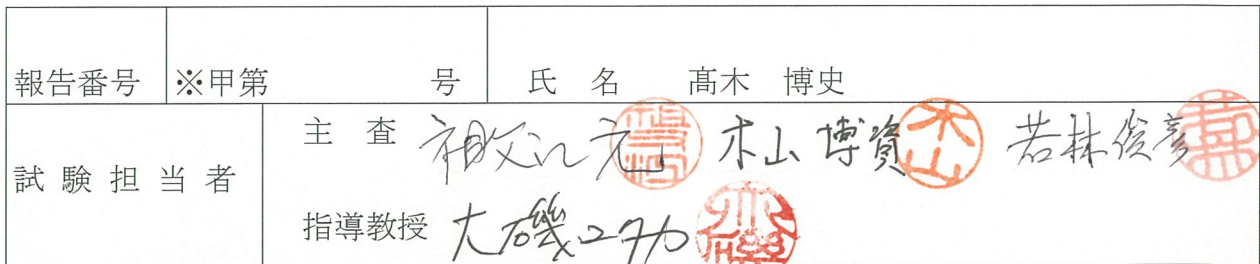 報告番号 ※甲第 号 氏名 髙木 博史
試験担当者 主査 祖父江 元 木山 博資 若林 俊彦
指導教授 大磯ユタカ